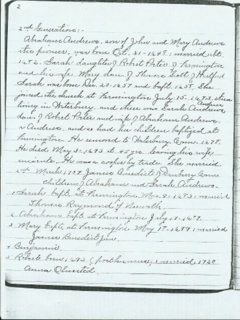 2
2nd Generation:-
Abraham Andrews, son of John and Mary Andrews
the pioneer, was born Oct. 31-1648. married abt.
1672. Sarah daughter of Robert Porter of Farmington
and his wife Mary daw. of Thomas Scott of Hartford
Sarah was born Dec. 20-1657 and bapt. 1658. She
joined the church at Farmington July 15-
in Waterbury, and
daw. of Robert Porter and wife of Abraham Andrews.
Andrews, and so had his children baptized at
Farmington. He removed to Waterbury Conn. 1678.
He died May 3-1693 at 45 yrs leaving his wife
He was a cooper by trade. She married
2nd March 1707 James Benedict of Danbury Conn.
children of Abraham and Sarah Andrews.
1 Sarah bapt. at Farmington Mar. 9-1683. married
Thomas Raymond of Norwalk
2 Abraham bapt. at Farmington July 18-1687.
3 Mary bapt. at Farmington May 1st-1689. married
James Benedict Jun.
4 Benjamin.
5 Robert born 1693 (posthumous) married 1720
Anna Olmsted